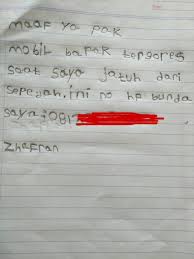 maaf ya pak
mobil bapak tergores
saat saya jatuh dari
sepedah.ini no hp bunda
saya:0812
Zhafran